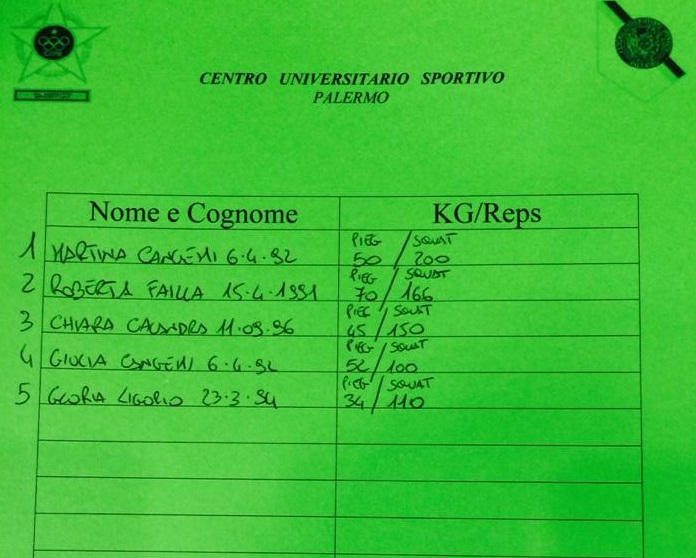 CENTRO UNIVERSITARIO SPORTIVO
PALERMO
Nome e Cognome KG/Reps
1 MARTINA CANGEMI 6.4.92 PIEG 50 / SQUAT 200
2 ROBERTA FAILLA 15.4.1991 PIEG 70 / SQUAT 166
3 CHIARA CALANDRA 11.09.96 PIEG 45 / SQUAT 150
4 GIULIA CANGEMI 6.4.92 PIEG 52 / SQUAT 100
5 GLORIA LIGORIO 23.3.94 PIEG 34 / SQUAT 110